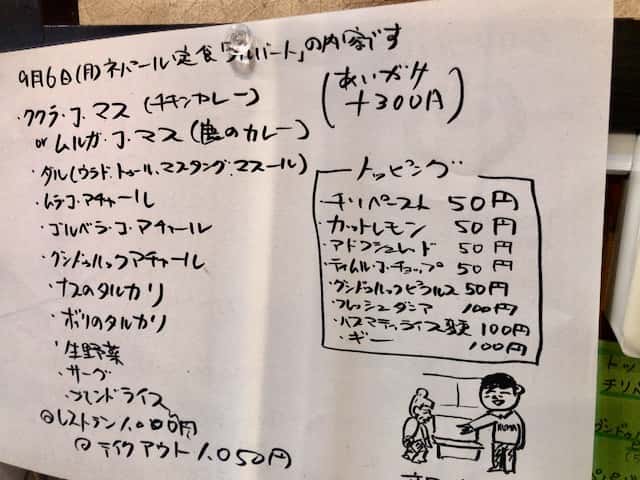 9月6日(月)ネパール定食「ダルバート」の内容です
・ククラ・コ・マス(チキンカレー)
or ムルガ・コ・マス(鹿のカレー)
(あいがけ
+300円)
・ダル(ウラド、トゥール、マスタング、マスール)
・ムラコ・アチャール
・ゴルベラ・コ・アチャール
・グンドゥルックアチャール
・ナスのタルカリ
・ボリのタルカリ
・生野菜
・サーグ
・ブレンドライス
◎レストラン 1,000円
◎テイクアウト 1,050円
トッピング
・チリペースト 50円
・カットレモン 50円
・アドワシュレッド 50円
・ティムル・コ・チョップ 50円
・グンドゥルックピクルス 50円
・フレッシュダニア 100円
・バスマティライス変更 100円
・ギー 100円
トッ
チリペ
グンドゥル